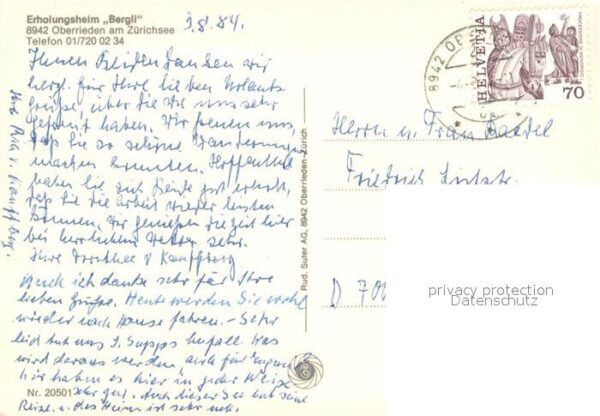 Erholungsheim „Bergli"
8942 Oberrieden am Zürichsee
Telefon 01/720 02 34
3.8.84.
Ihnen Beiden danken wir
herzl. für Ihre lieben Urlaubs
grüße, über die wir uns sehr
gefreut haben. Wir freuen uns,
daß Sie so schöne Wanderungen
machen konnten. Hoffentlich
haben Sie sich Beide gut erholt,
daß Sie die Arbeit wieder leisten
können. Wir genießen die Zeit hier
bei herrlichem Wetter sehr.
Ihre Dorothee v
Auch ich danke sehr für Ihre
lieben Grüße. Heute werden Sie wohl
wieder nach Hause fahren. - Sehr
leid tut uns Was
wird daraus werden, auch für
Wir haben es hier in jeder Weise
sehr gut. Auch dieser See hat seine
Reize. u. das Heim ist sehr nett.
Ihre v.
Nr. 20501
Rud. Suter AG, 8942 Oberrieden-Zürich
HELVETIA
70
8942
Herrn u. Frau
Friedrich
D 700
privacy protection
Datenschutz